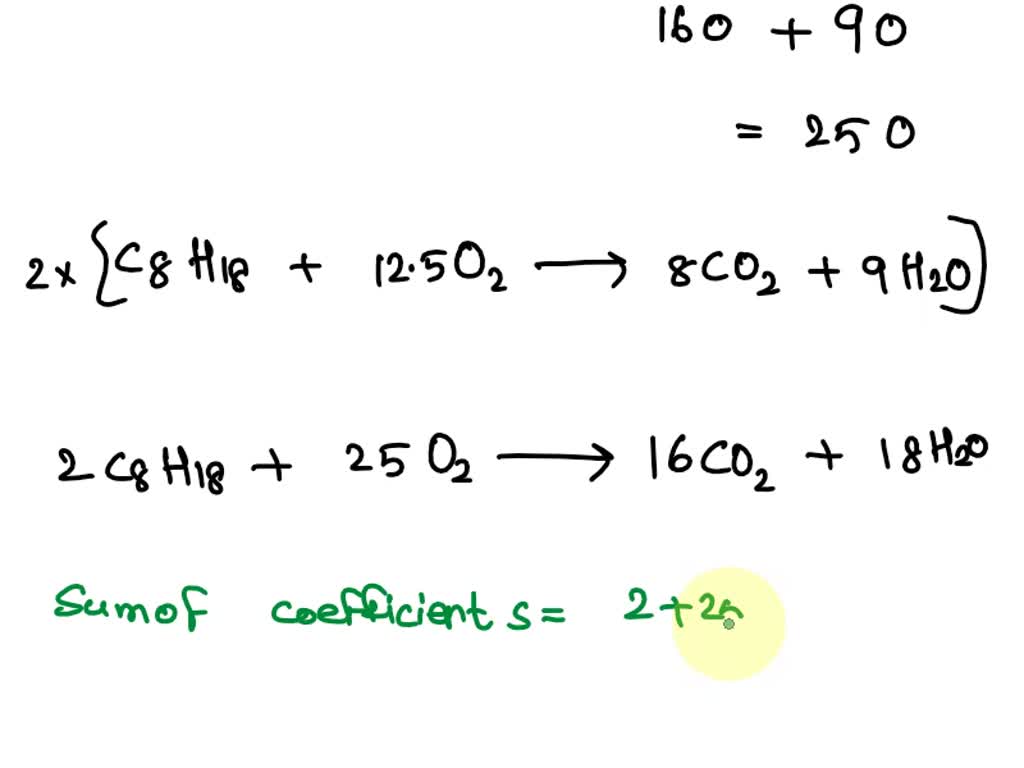 160 + 90
= 250
2 x [C8H18 + 12.5O2 → 8CO2 + 9H2O]
2C8H18 + 25O2 → 16CO2 + 18H2O
Sum of coefficients = 2+25